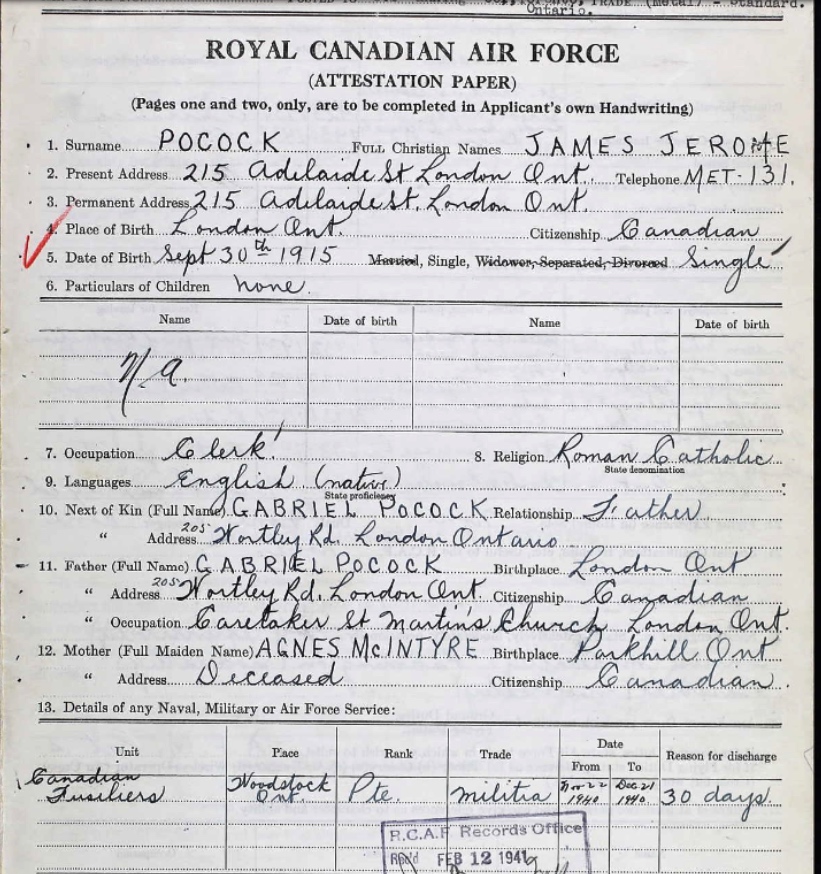 Ontario. TRADE (Metal) - Standard.
ROYAL CANADIAN AIR FORCE
(ATTESTATION PAPER)
(Pages one and two, only, are to be completed in Applicant's own Handwriting)
1. Surname POCOCK FULL Christian Names JAMES JEROME
2. Present Address 215 Adelaide St London Ont. Telephone MET-131.
3. Permanent Address 215 Adelaide St. London Ont.
4. Place of Birth London Ont. Citizenship Canadian
5. Date of Birth Sept 30th 1915 Married, Single, Widower, Separated, Divorced Single
6. Particulars of Children none.
Name Date of birth Name Date of birth
N/a.
7. Occupation Clerk 8. Religion Roman Catholic
State denomination
9. Languages English (native)
State proficiency
10. Next of Kin (Full Name) GABRIEL POCOCK Relationship Father
" Address 205 Wortley Rd. London Ontario
11. Father (Full Name) GABRIEL POCOCK Birthplace London Ont
" Address 205 Wortley Rd. London Ont. Citizenship Canadian
" Occupation Caretaker St Martin's Church London Ont.
12. Mother (Full Maiden Name) AGNES McINTYRE Birthplace Parkhill Ont
" Address Deceased Citizenship Canadian.
13. Details of any Naval, Military or Air Force Service:
Unit Place Rank Trade Date Reason for discharge
From To
Canadian Fusiliers Woodstock Ont. Pte. militia Nov-22 1940 Dec. 21 1940 30 days
R.C.A.F. Records Office
Rec'd FEB 12 1941